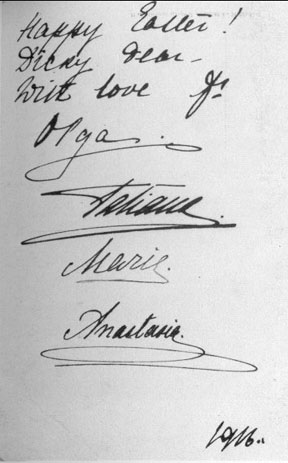 Happy Easter!
Dicky dear -
With love fr
Olga.
Tatiana.
Marie.
Anastasia.
1916.